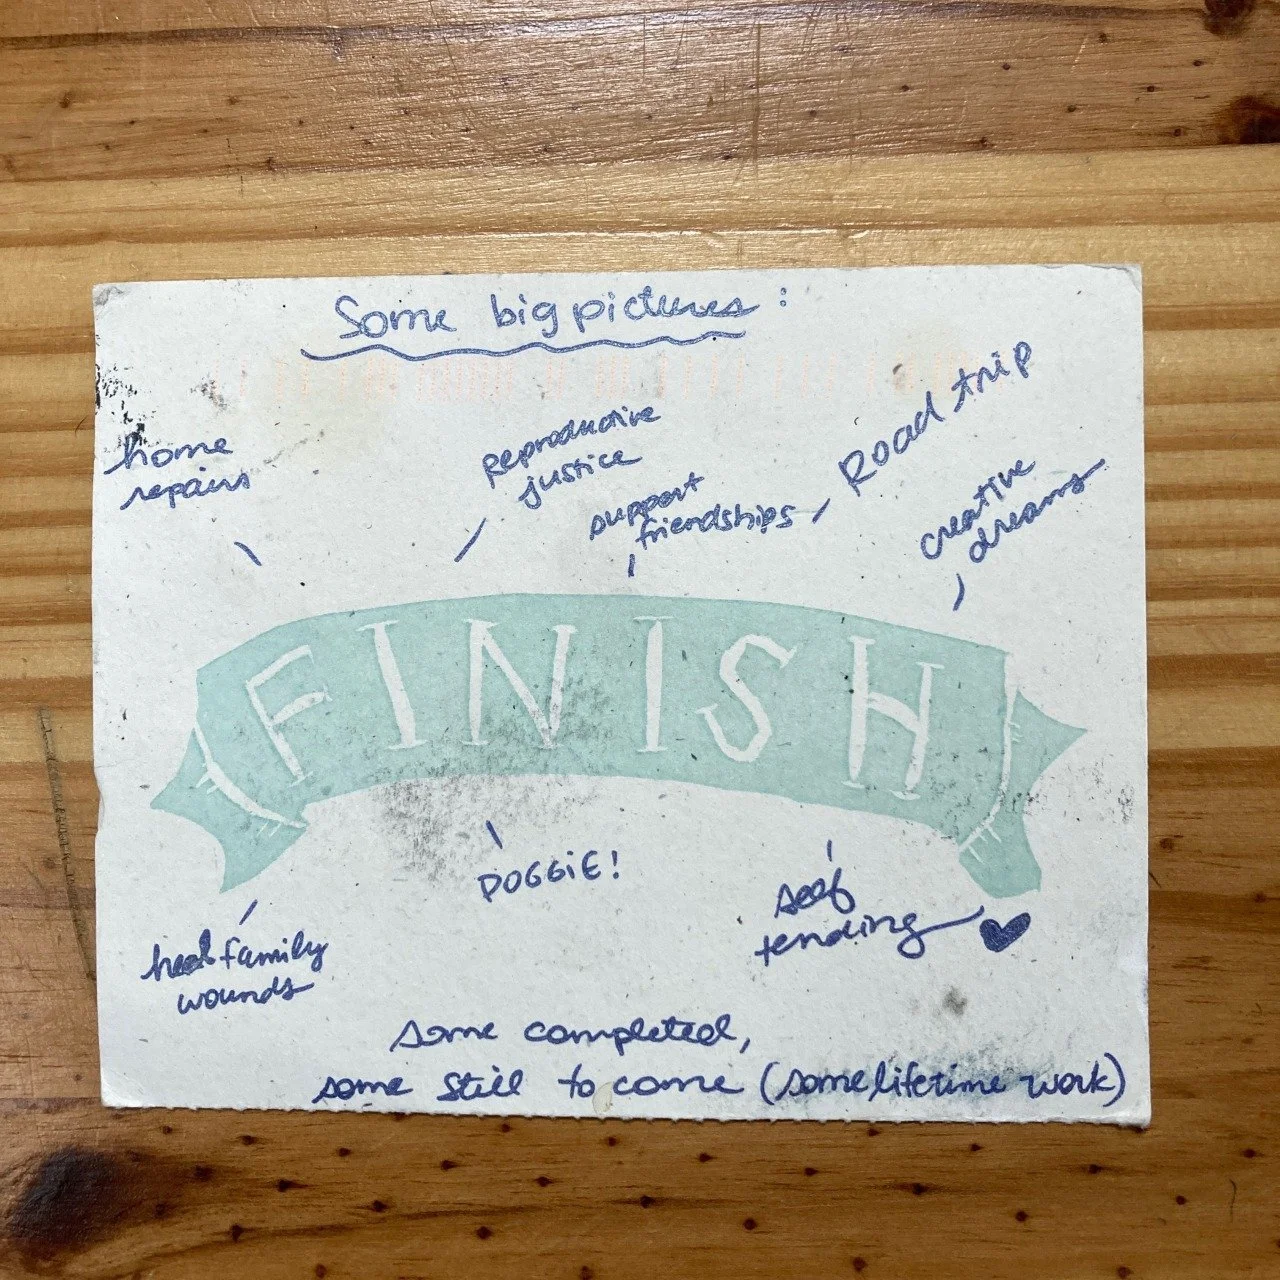 Some big pictures:
home
repairs
Reproductive
justice
support
friendships
Road trip
creative
dreams
FINISH
DOGGiE!
self
tending
heal family
wounds
some completed,
some still to come (some lifetime work)